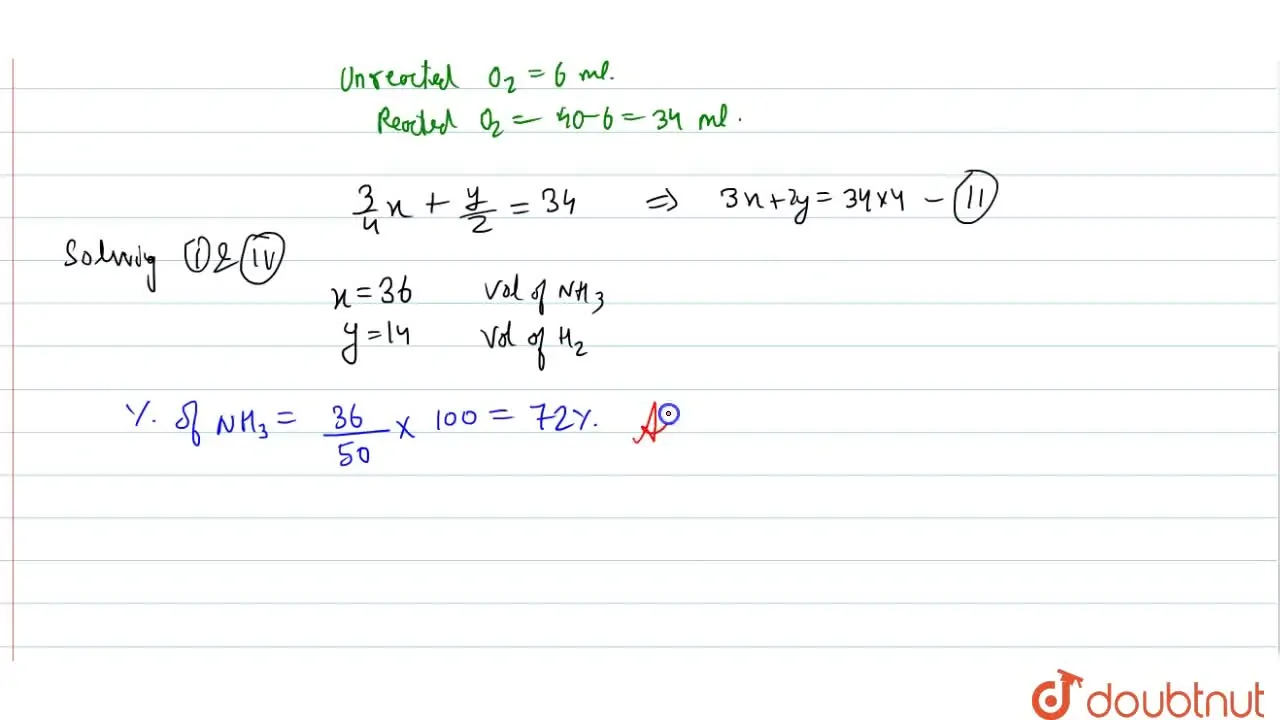 Unreacted O2 = 6 ml.
Reacted O2 = 40-6 = 34 ml.
3/4 x + y/2 = 34 ⇒ 3x+2y = 34×4 - (II)
Solving (I) & (IV)
x = 36 Vol of NH3
y = 14 Vol of H2
% of NH3 = 36/50 × 100 = 72%. A
doubtnut